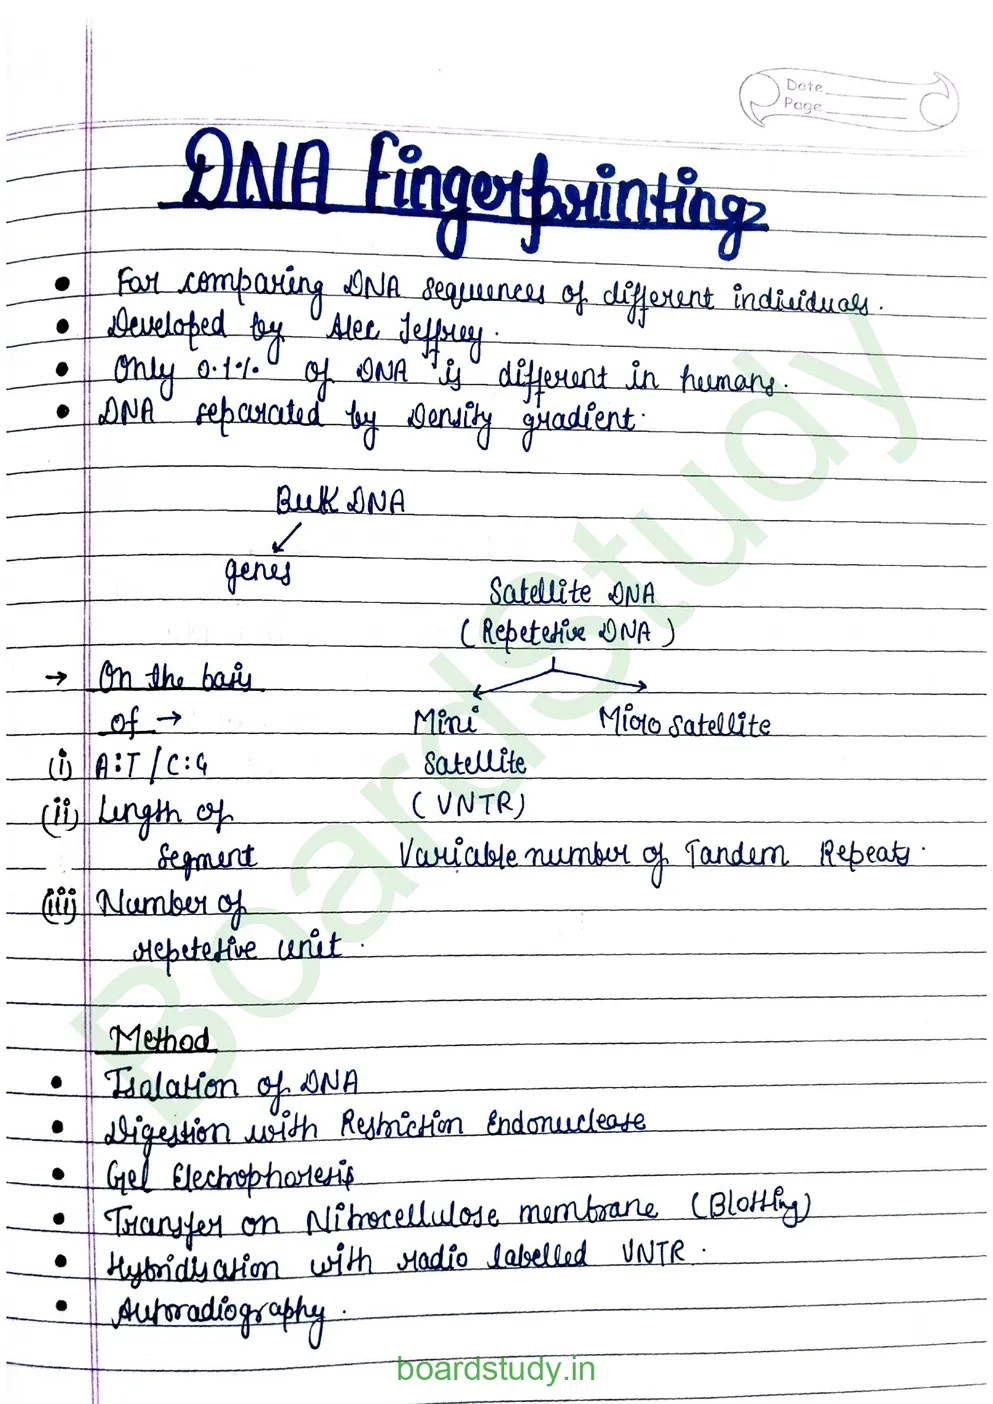 Date
Page
DNA Fingerprinting
• For comparing DNA sequences of different individuals.
• Developed by Alec Jeffrey.
• Only 0.1% of DNA is different in humans.
• DNA separated by Density gradient.
Bulk DNA
genes
Satellite DNA
(Repetetive DNA)
→ On the basis
of →
Mini Micro satellite
(i) A:T / C:G Satellite
(ii) Length of (VNTR)
segment Variable number of Tandem Repeats.
(iii) Number of
repetetive unit.
Method
• Isolation of DNA
• Digestion with Restriction Endonuclease
• Gel Electrophoresis
• Transfer on Nitrocellulose membrane (Blotting)
• Hybridisation with radio labelled VNTR.
• Autoradiography.
Boardstudy
boardstudy.in